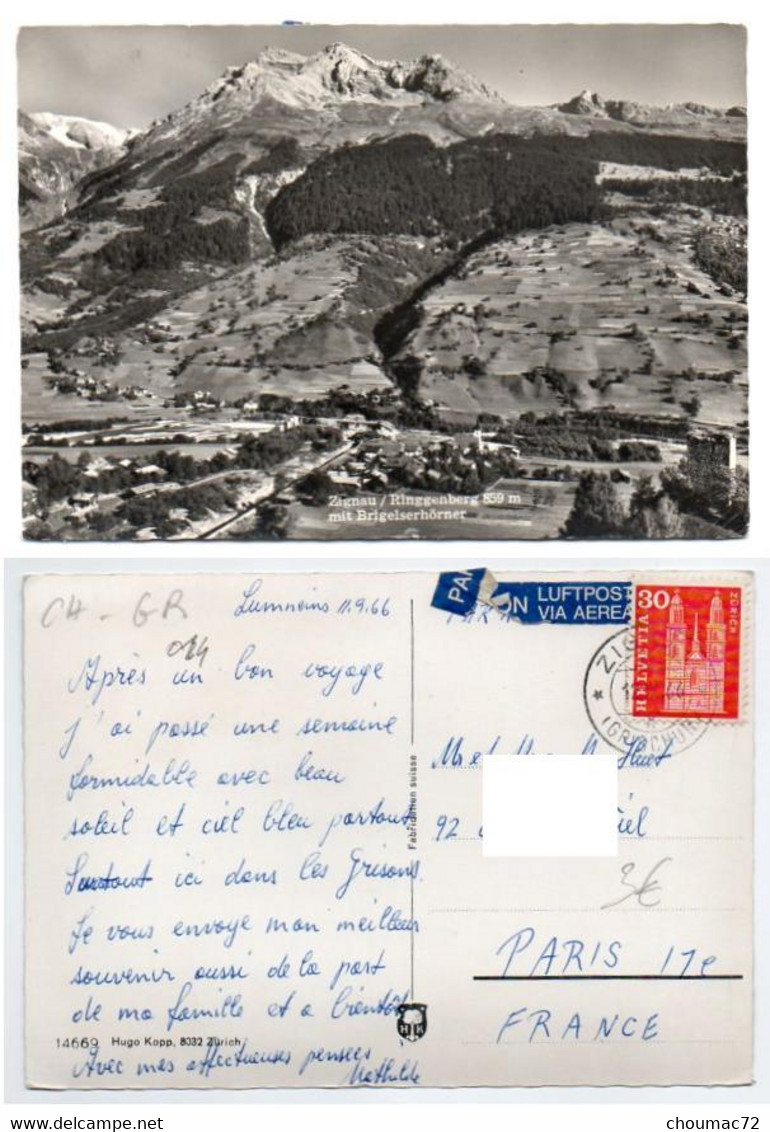 Zignau / Ringgenberg 859 m
mit Brigelserhörner
CH - GR
014
Lumneins 11.9.66
Après un bon voyage
j'ai passé une semaine
formidable avec beau
soleil et ciel bleu partout.
Surtout ici dans les Grisons.
Je vous envoye mon meilleur
souvenir aussi de la part
de ma famille et a bientôt
Avec mes affectueuses pensées
Mathilde
14669 Hugo Kopp, 8032 Zürich
Fabrikation suisse
HK
PAR AVION LUFTPOST
VIA AEREA
30
HELVETIA
ZÜRICH
Mr et Huet
92
PARIS 17e
FRANCE
3€
choumac72